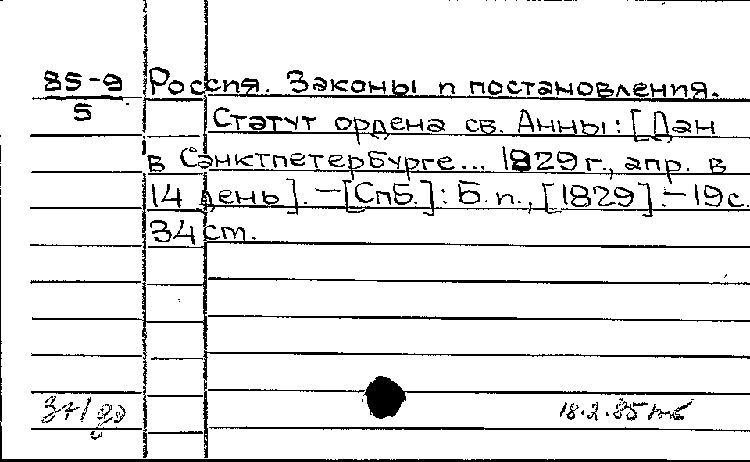 85-9 Россия. Законы и постановления.
5 Статут ордена св. Анны: [Дан
в Санктпетербурге... 1829 г., апр. в
14 день]. - [СПб.]: Б. и., [1829]. - 19 с.
34 см.
18.2.85